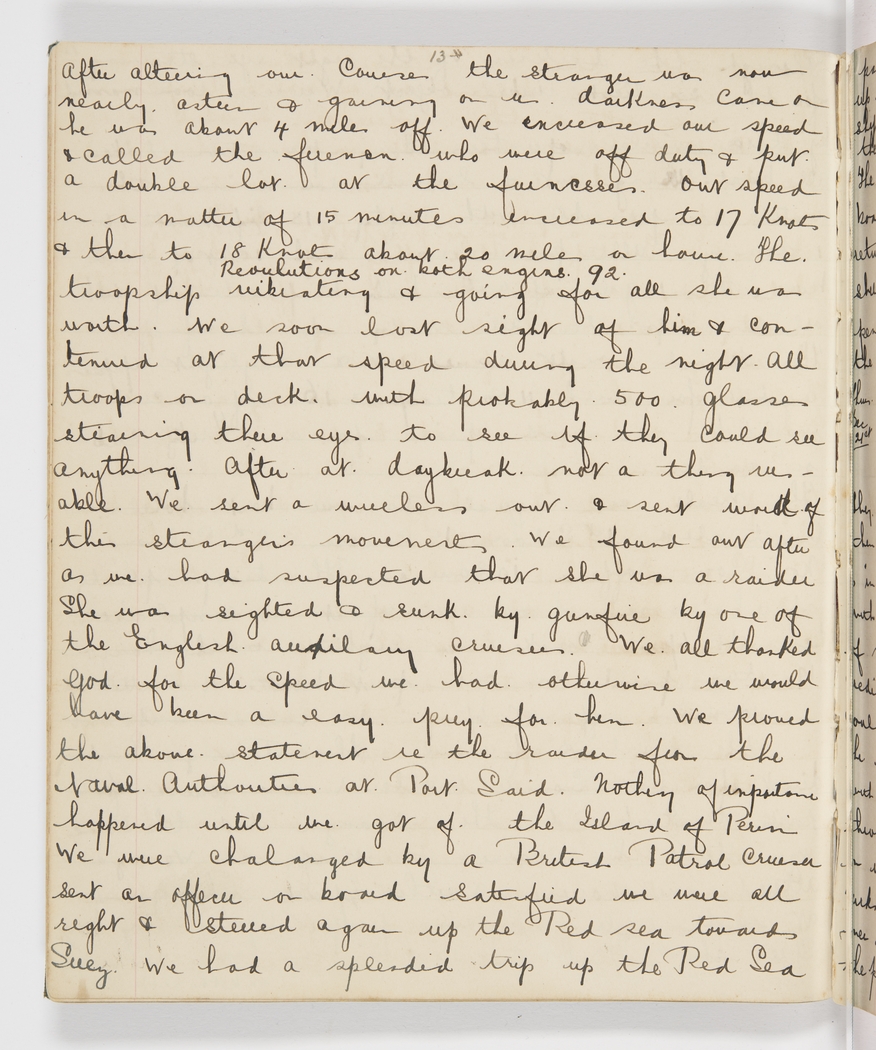 13
After altering our. Course the stranger was now
nearly. astern & gaining on us. darkness came on
he was about 4 miles off. We encreased our speed
& called the firemen. who were off duty & put.
a double lot. at the furncesses. Our speed
in a matter of 15 minutes increased to 17 Knots
& then to 18 Knots about. 20 miles an hour. The.
Revolutions on. both engins. 92.
troopship vibrating & going for all she was
worth. We soon lost sight of him & con-
tenued at that speed during the night. All
troops on deck. with probably. 500. glasses
straining there eyes. to see if they could see
anything. After at. daybreak. not a thing vis-
able. We sent a wireless out. & sent word of
this strangers movements. We found out after
as we. had suspected that she was a raider
She was sighted & sunk. by. gunfire by one of
the English. auxilary cruesers. We. all thanked
God. for the Speed we. had. otherwise we would
have been a easy. prey. for. her. We proved
the above. statement re the raider from the
Naval. Authorities at. Port. Said. Nothing of importance
happened until we. got of. the Island of Perim
We were chalanged by a British Patrol Crueser
sent an officer on board satesfied we were all
right & steered again up the Red sea towards
Suez. We had a splended trip up the Red Sea